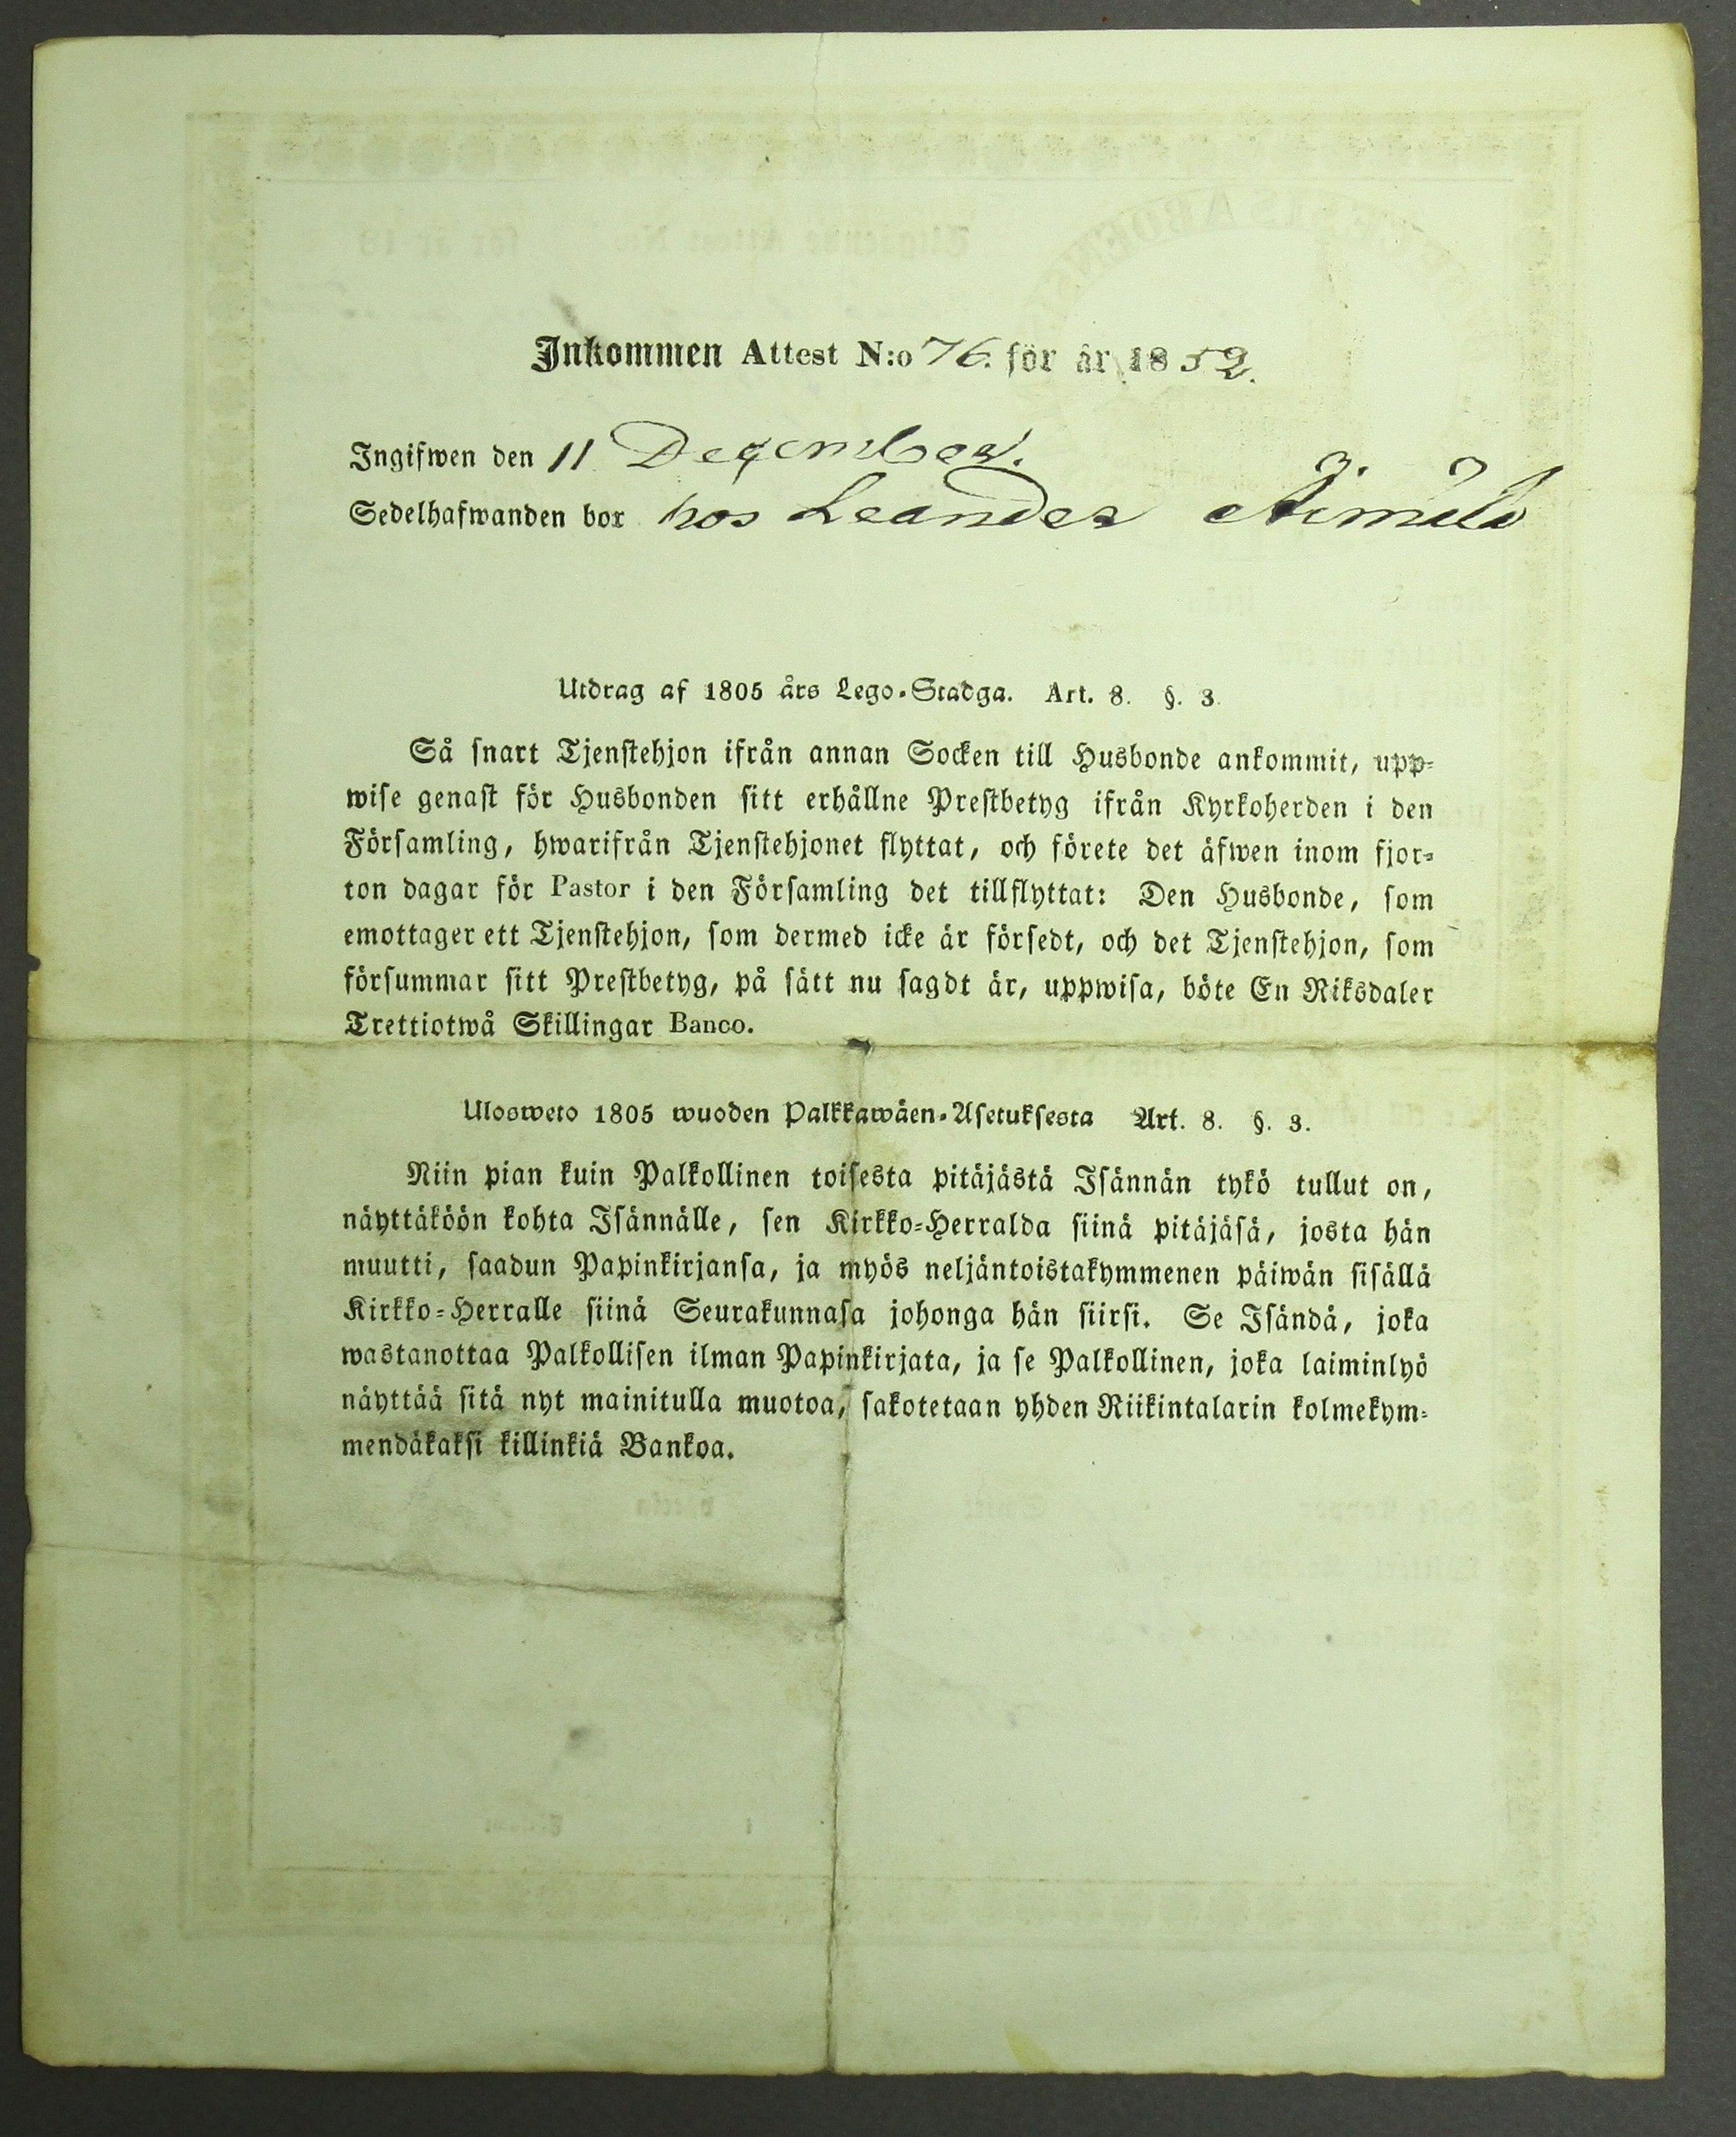 Inkommen Attest N:o 76. för år 1852.
Ingifwen den 11 December.
Sedelhafwanden bor hos Leander
Utdrag af 1805 års Lego-Stadga. Art. 8. §. 3.
Så snart Tjenstehjon ifrån annan Socken till Husbonde ankommit, upp-
wise genast för Husbonden sitt erhållne Prestbetyg ifrån Kyrkoherden i den
Församling, hwarifrån Tjenstehjonet flyttat, och förete det äfwen inom fjor-
ton dagar för Pastor i den Församling det tillflyttat: Den Husbonde, som
emottager ett Tjenstehjon, som dermed icke är försedt, och det Tjenstehjon, som
försummar sitt Prestbetyg, på sätt nu sagdt är, uppwisa, böte En Riksdaler
Trettiotwå Skillingar Banco.
Ulosweto 1805 wuoden Palkkawäen-Asetuksesta Art. 8. §. 3.
Niin pian kuin Palkollinen toisesta pitäjästä Isännän tykö tullut on,
näyttäköön kohta Isännälle, sen Kirkko-Herralda siinä pitäjäsä, josta hän
muutti, saadun Papinkirjansa, ja myös neljäntoistakymmenen päiwän sisällä
Kirkko-Herralle siinä Seurakunnasa johonga hän siirsi. Se Isändä, joka
wastanottaa Palkollisen ilman Papinkirjata, ja se Palkollinen, joka laiminlyö
näyttää sitä nyt mainitulla muotoa, sakotetaan yhden Riikintalarin kolmekym-
mendäkaksi killinkiä Bankoa.